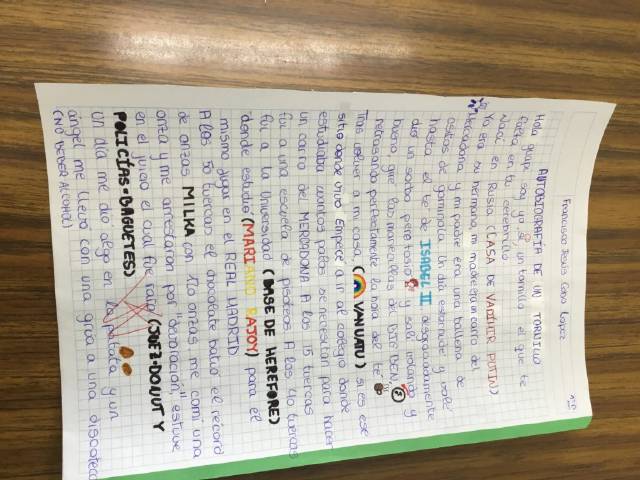 Francisco Jesús Cano López 1ºD
AUTOBIOGRAFÍA DE UN TORNILLO
Hola guapi soy yo, un tornillo, el que te
falta en tu cerebrito.
Nací en Rusia (CASA DE VADIMIR PUTIN)
Ya era su hermano, mi madre era un carro del
Mercadona y mi padre era una ballena de
ositos de gominola. Un día estornudé y volé
hasta el té de ISABEL II desgraciadamente
dio un sorbo pero tosió y salí volando y
bueno, que las manecillas del BIG BEN
retrasando perfectamente la hora del té
Tras volver a mi casa (VANUATU) si es ese
sitio donde vivo. Empecé a ir al colegio donde
estudiaba cuantos palos se necesitan para hacer
un carro del MERCADONA. A los 15 tuercas
fui a una escuela de pisoteos. A los 40 tuercas
fui a la Universidad (BASE DE HEREFORE)
donde estudié (MARIANO RAJOY) para el
mismo lugar en el REAL MADRID
A los 50 tuercas el chocolate batió el récord
de onzas MILKA con 120 onzas me comí una
onza y me arrestaron por "devoración", estuve
en el juicio el cual fue raro (JUEZ=DONUT Y
POLICÍAS=BAGUETES)
Un día me dio algo en la patata y un
ángel me llevó con una grúa a una discoteca
(NO BEBER ALCOHOL)